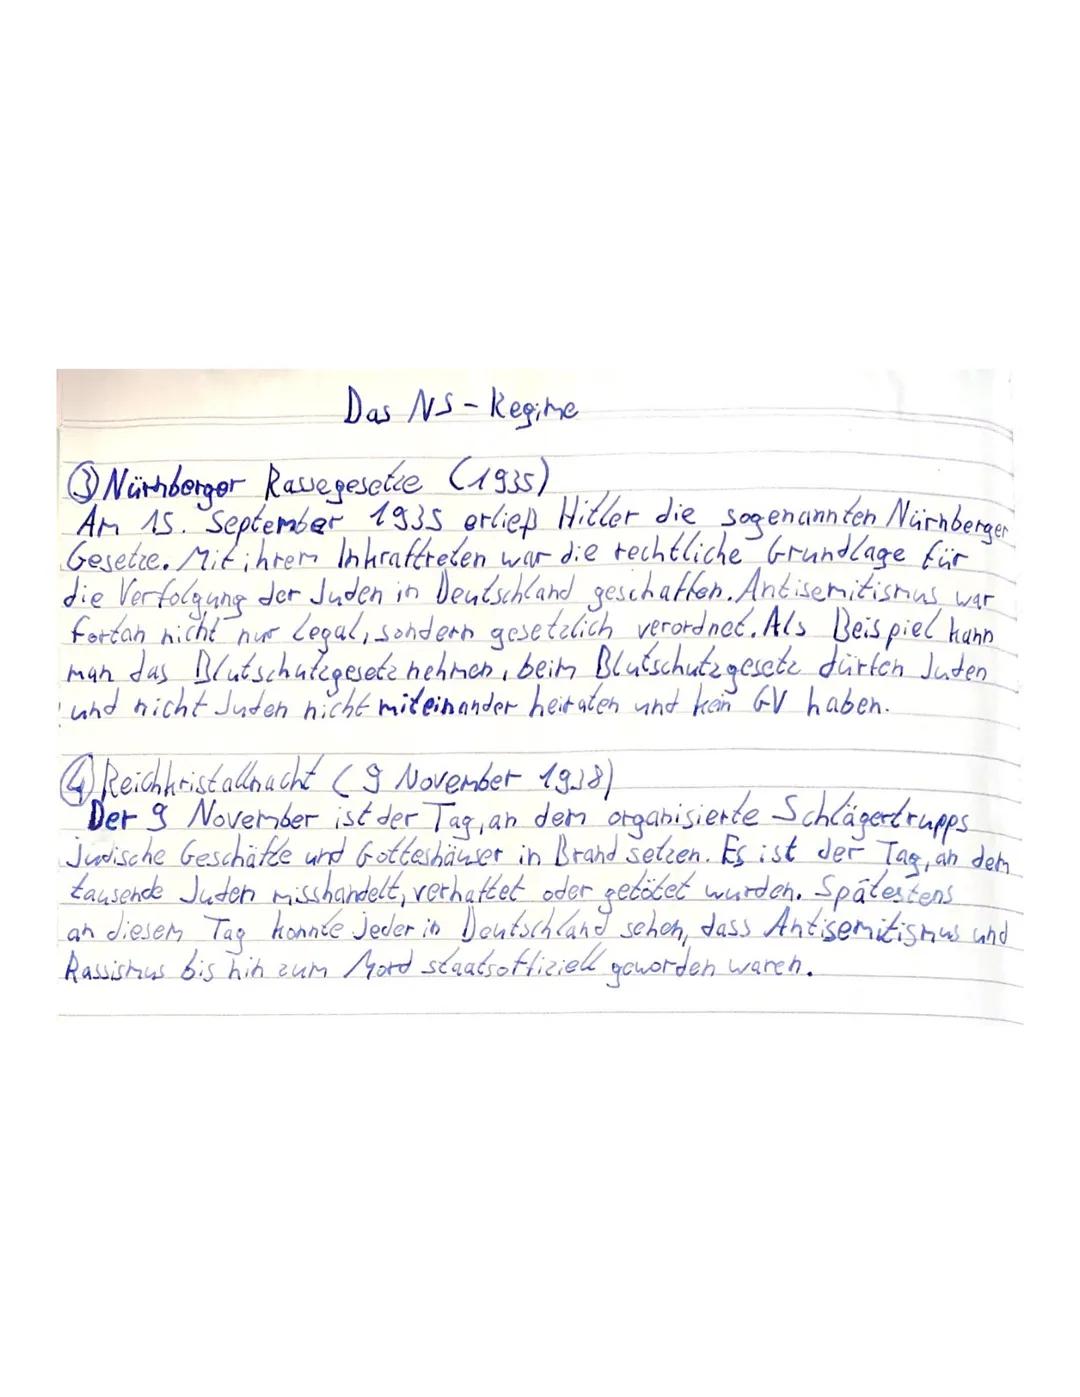 Das NS-Regime
③ Nürnberger Rassegesetze (1935)
Am 15. September 1935 erließ Hitler die sogenannten Nürnberger
Gesetze. Mit ihrem Inkraftreten war die rechtliche Grundlage für
die Verfolgung der Juden in Deutschland geschaffen. Antisemitismus war
fortan nicht nur legal, sondern gesetzlich verordnet. Als Beispiel kann
man das Blutschutzgesetz nehmen, beim Blutschutzgesetz dürfen Juden
und nicht Juden nicht miteinander heiraten und kein GV haben.
④ Reichkristallnacht (9 November 1938)
Der 9 November ist der Tag, an dem organisierte Schlägertrupps
jüdische Geschäfte und Gotteshäuser in Brand setzen. Es ist der Tag, an dem
tausende Juden misshandelt, verhaftet oder getötet wurden. Spätestens
an diesem Tag konnte jeder in Deutschland sehen, dass Antisemitismus und
Rassismus bis hin zum Mord staatsoffiziell geworden waren.